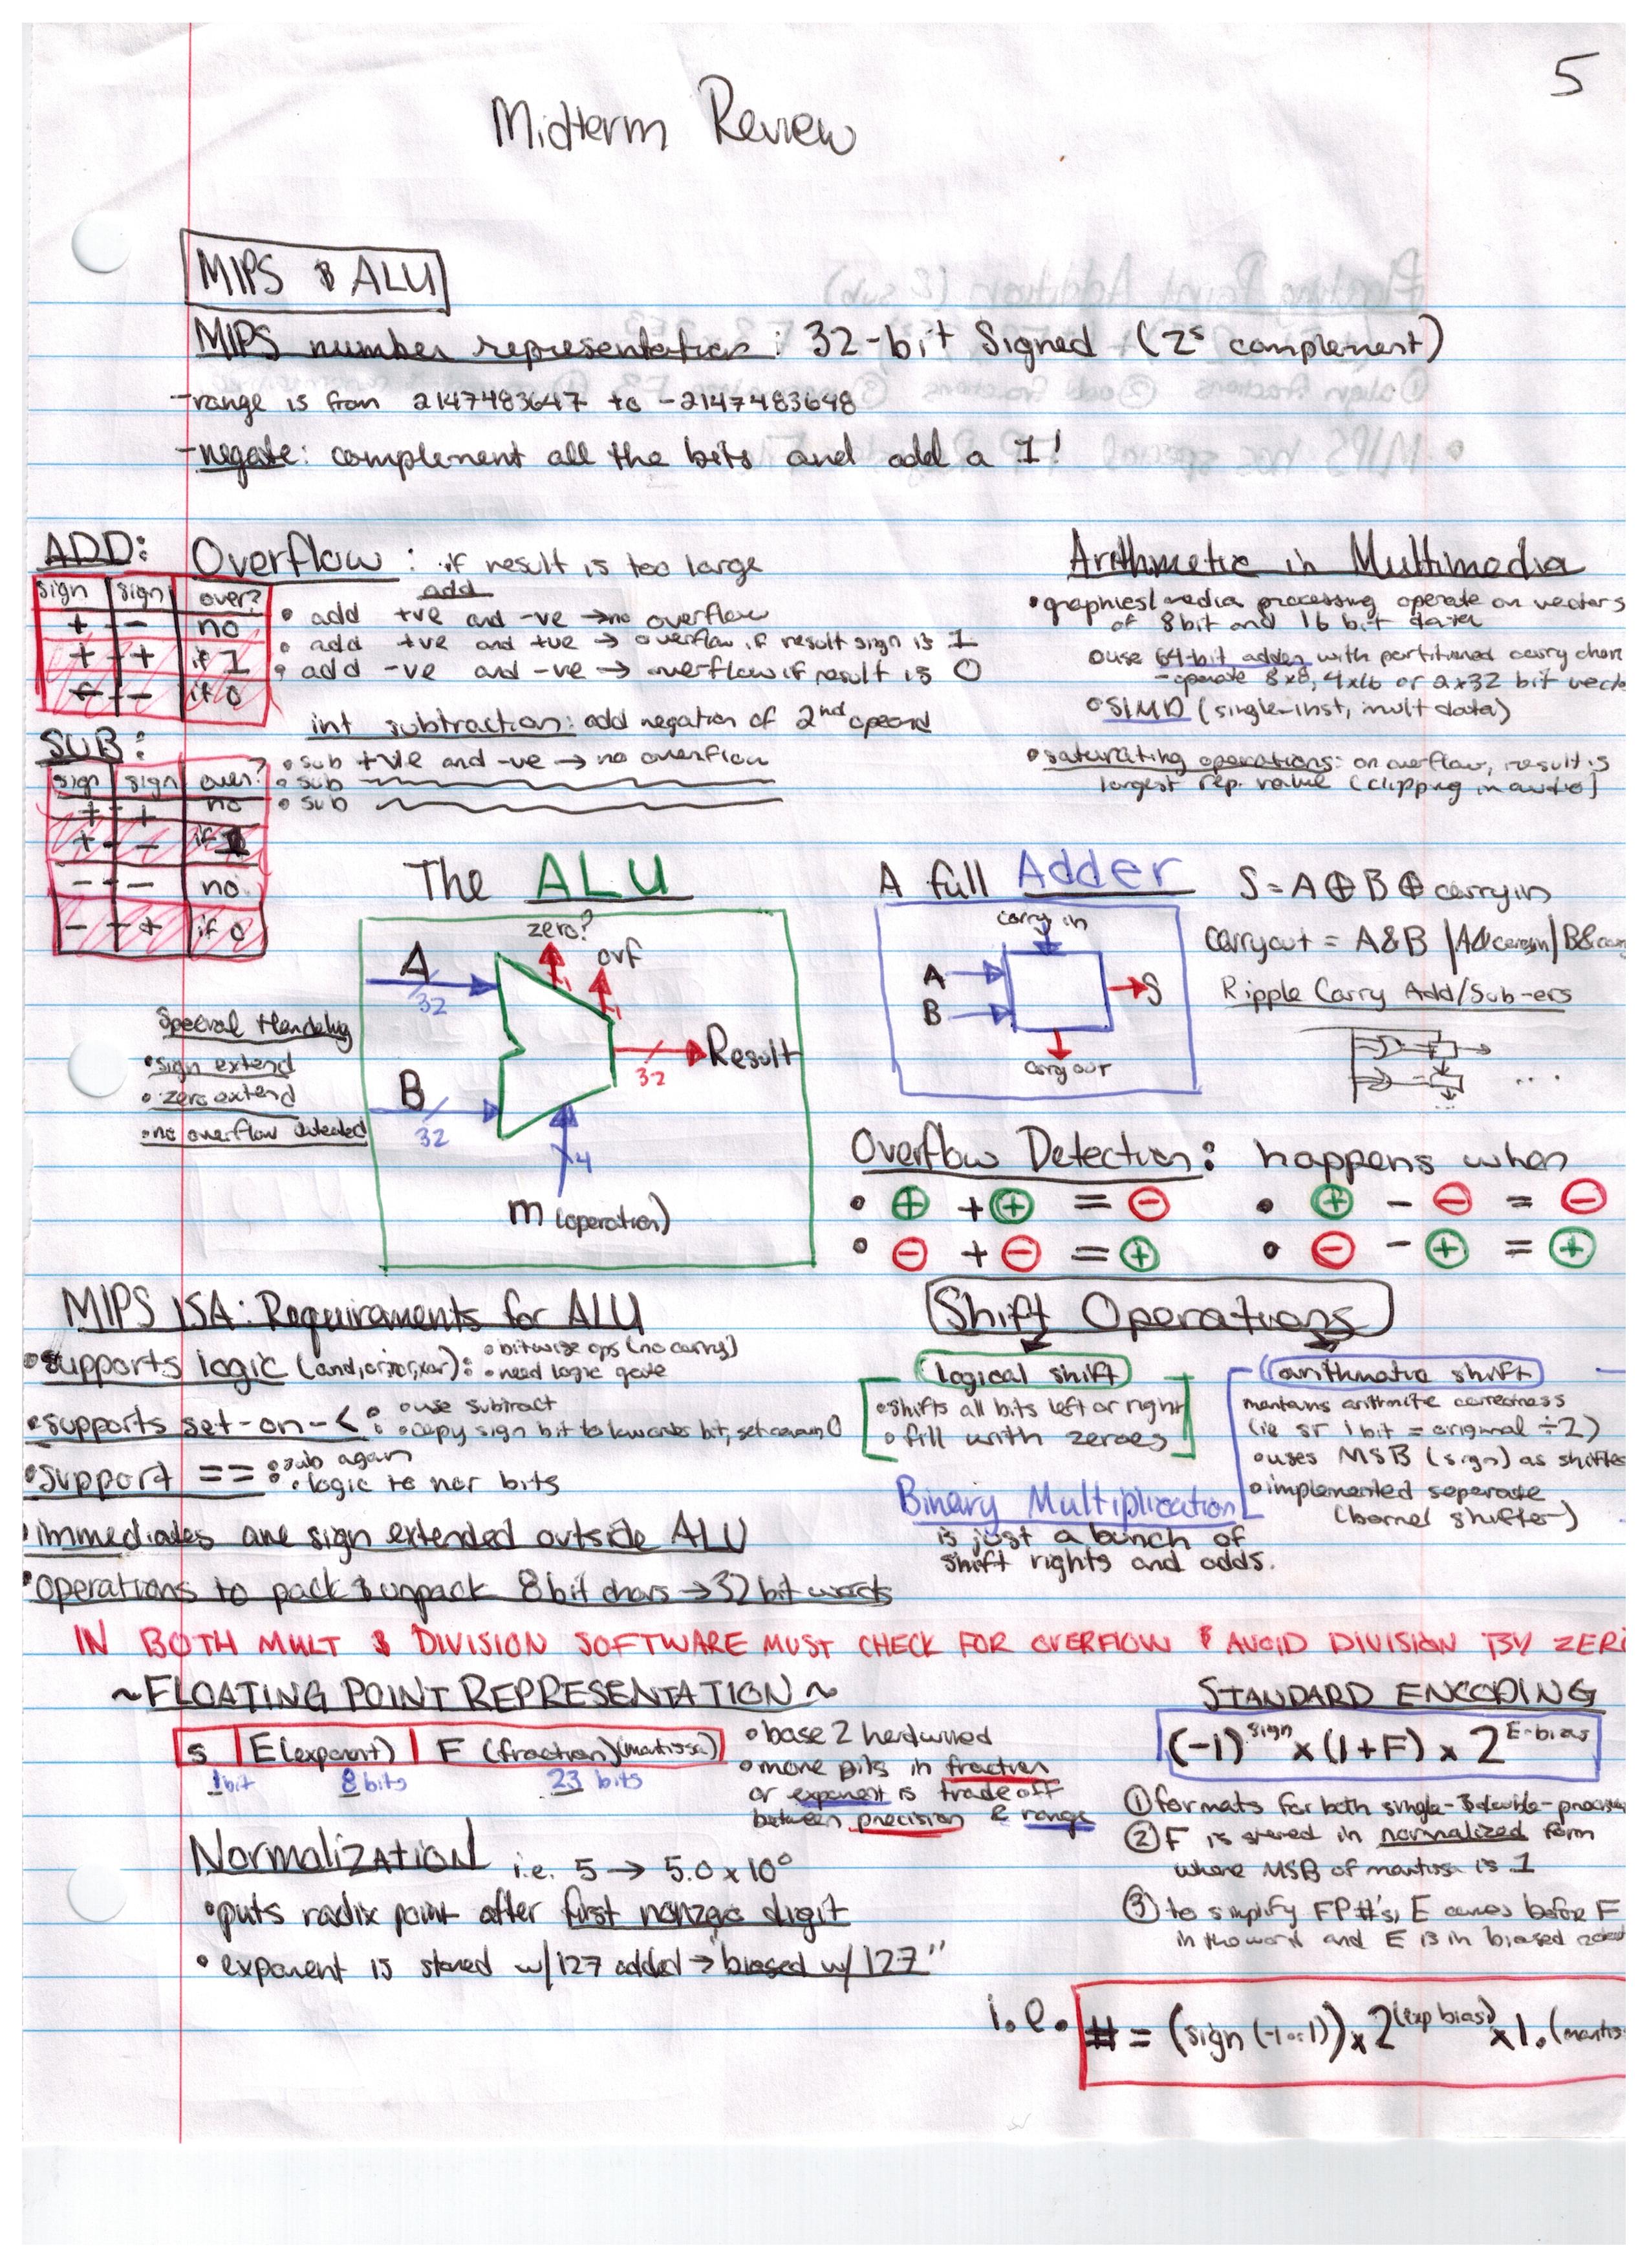 5
Midterm Review
MIPS & ALU
MIPS number representation: 32-bit Signed (2s complement)
- range is from 2147483647 to -2147483648
- negate: complement all the bits and add a 1!
ADD:
sign sign over?
+ - no
+ + if 1
- - if 0
SUB:
sign sign over?
+ + no
+ - if 1
- - no
- + if 0
Overflow: if result is too large
add
• add +ve and -ve → no overflow
• add +ve and +ve → overflow if result sign is 1
• add -ve and -ve → overflow if result is 0
int subtraction: add negation of 2nd operand
• sub +ve and -ve → no overflow
• sub
• sub
Arithmetic in Multimedia
• graphics/media processing operate on vectors
of 8bit and 16 bit data
o use 64-bit adder with partitioned carry chain
- operate 8x8, 4x16 or 2x32 bit vecto
o SIMD (single-inst, mult data)
• saturating operations: on overflow, result is
largest rep. value (clipping in audio)
The ALU
zero?
ovf
A
32
B
32
Result
32
4
m (operation)
Special Handling
• sign extend
• zero extend
• no overflow detected
A full Adder
carry in
A
B
S
carry out
S = A ⊕ B ⊕ carryin
carryout = A&B |A&carryin|B&carr
Ripple Carry Add/Sub-ers
...
Overflow Detection: happens when
• + + + = - • + - - = -
• - + - = + • - - + = +
MIPS ISA: Requirements for ALU
• supports logic (and,or,nor,xor): • bitwise ops (no carry)
• need logic gate
• supports set-on-<: o use subtract
o copy sign bit to low order bit, set remain 0
• support ==: • sub again
• logic to nor bits
• immediates are sign extended outside ALU
• operations to pack & unpack 8bit chars → 32 bit words
Shift Operations
logical shift
• shifts all bits left or right
• fill with zeroes
arithmatic shift
mantains arithmitc correctness
(ie sr 1 bit = original ÷ 2)
o uses MSB (sign) as shifte
o implemented seperate
(barrel shifter)
Binary Multiplication
is just a bunch of
shift rights and adds.
IN BOTH MULT & DIVISION SOFTWARE MUST CHECK FOR OVERFLOW & AVOID DIVISION BY ZERO
~FLOATING POINT REPRESENTATION~
s E(exponent) F (fraction)(mantissa)
1bit 8 bits 23 bits
• base 2 hardwired
• more bits in fraction
or exponent is trade off
between precision & range
Normalization i.e. 5 → 5.0 x 10⁰
• puts radix point after first nonzero digit
• exponent is stored w/127 added → "biased w/127"
STANDARD ENCODING
(-1)^sign x (1+F) x 2^E-bias
① formats for both single- & double-precision
② F is stored in normalized form
where MSB of mantissa is 1
③ to simplify FP #'s, E comes before F
in the word and E is in biased
i.e. # = (sign (-1 or 1)) x 2^(exp bias) x 1.(mantis